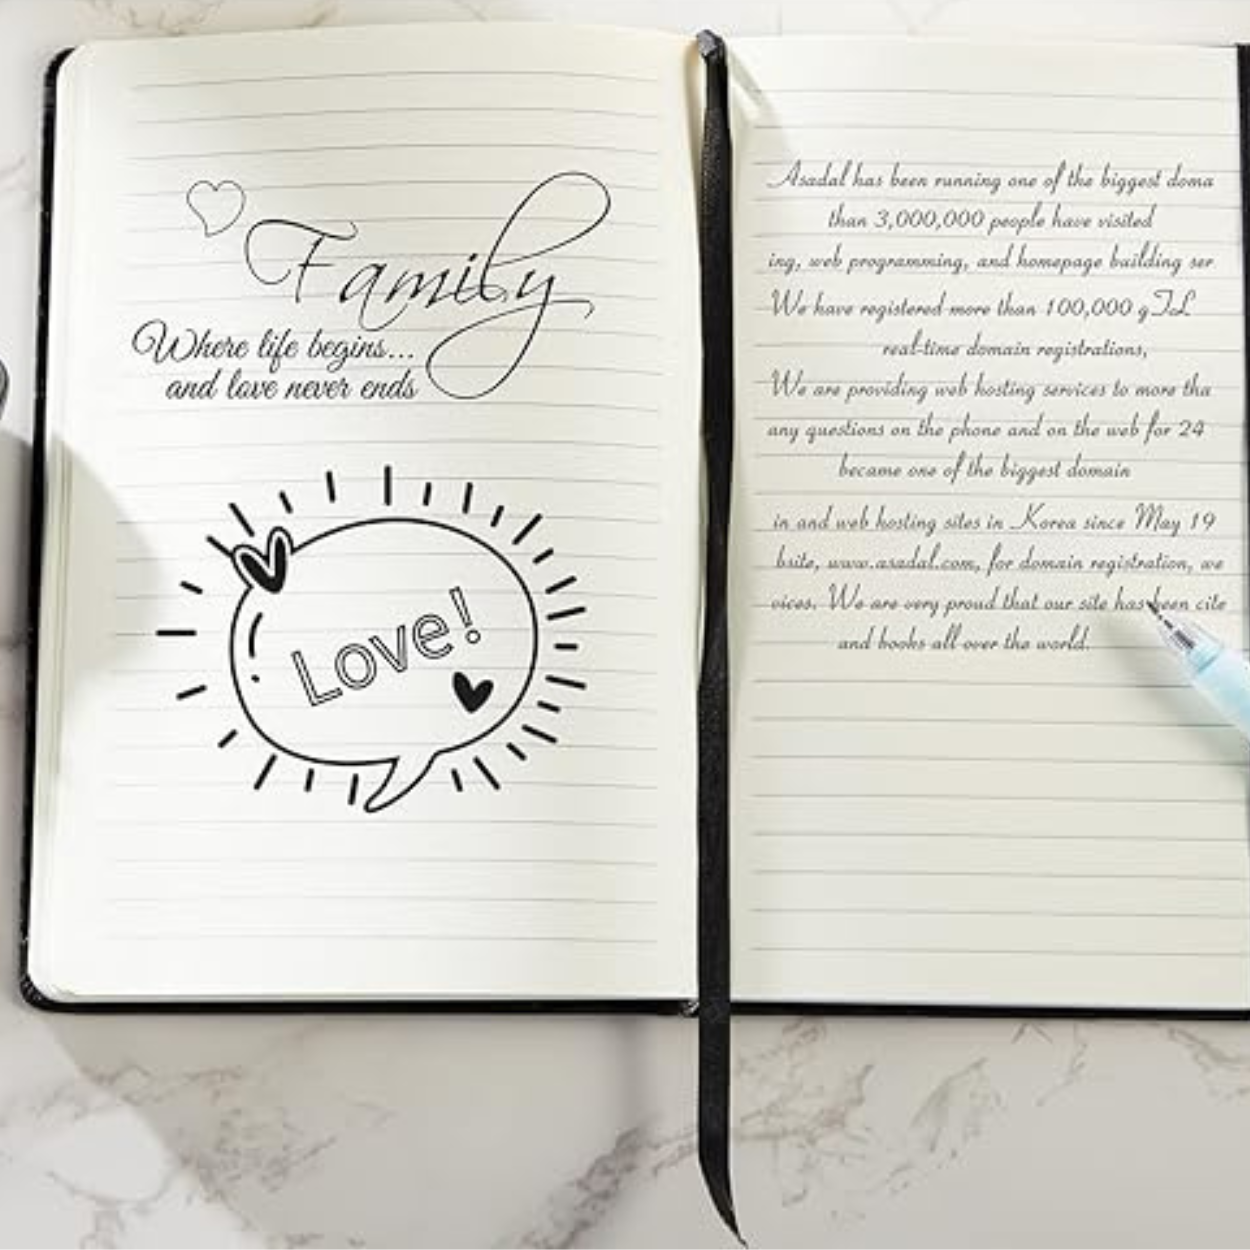 Family
Where life begins...
and love never ends
Love!
Asadal has been running one of the biggest doma
than 3,000,000 people have visited
ing, web programming, and homepage building ser
We have registered more than 100,000 gTL
real-time domain registrations,
We are providing web hosting services to more tha
any questions on the phone and on the web for 24
became one of the biggest domain
in and web hosting sites in Korea since May 19
bsite, www.asadal.com, for domain registration, we
vices. We are very proud that our site has been cite
and books all over the world.